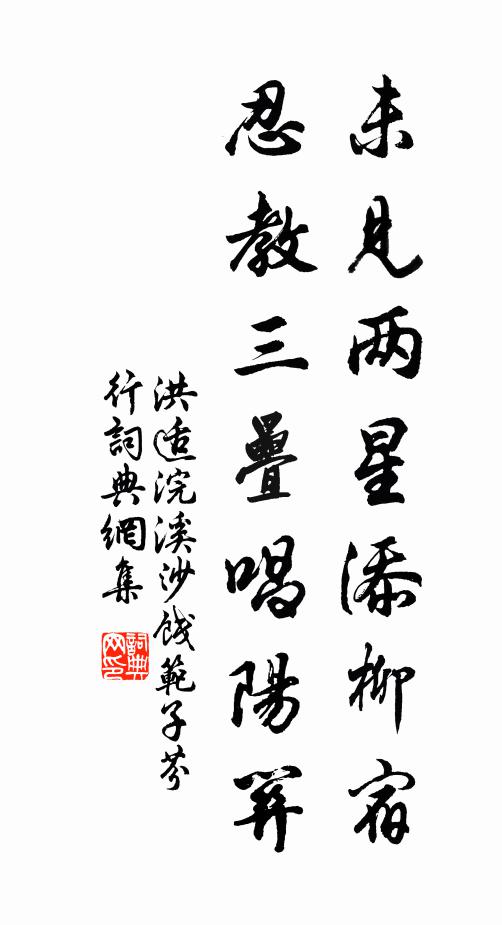 未見两星添柳宿
忍教三疊唱陽關
洪适浣溪沙餞範子芬
行詞典網集
詞典网印